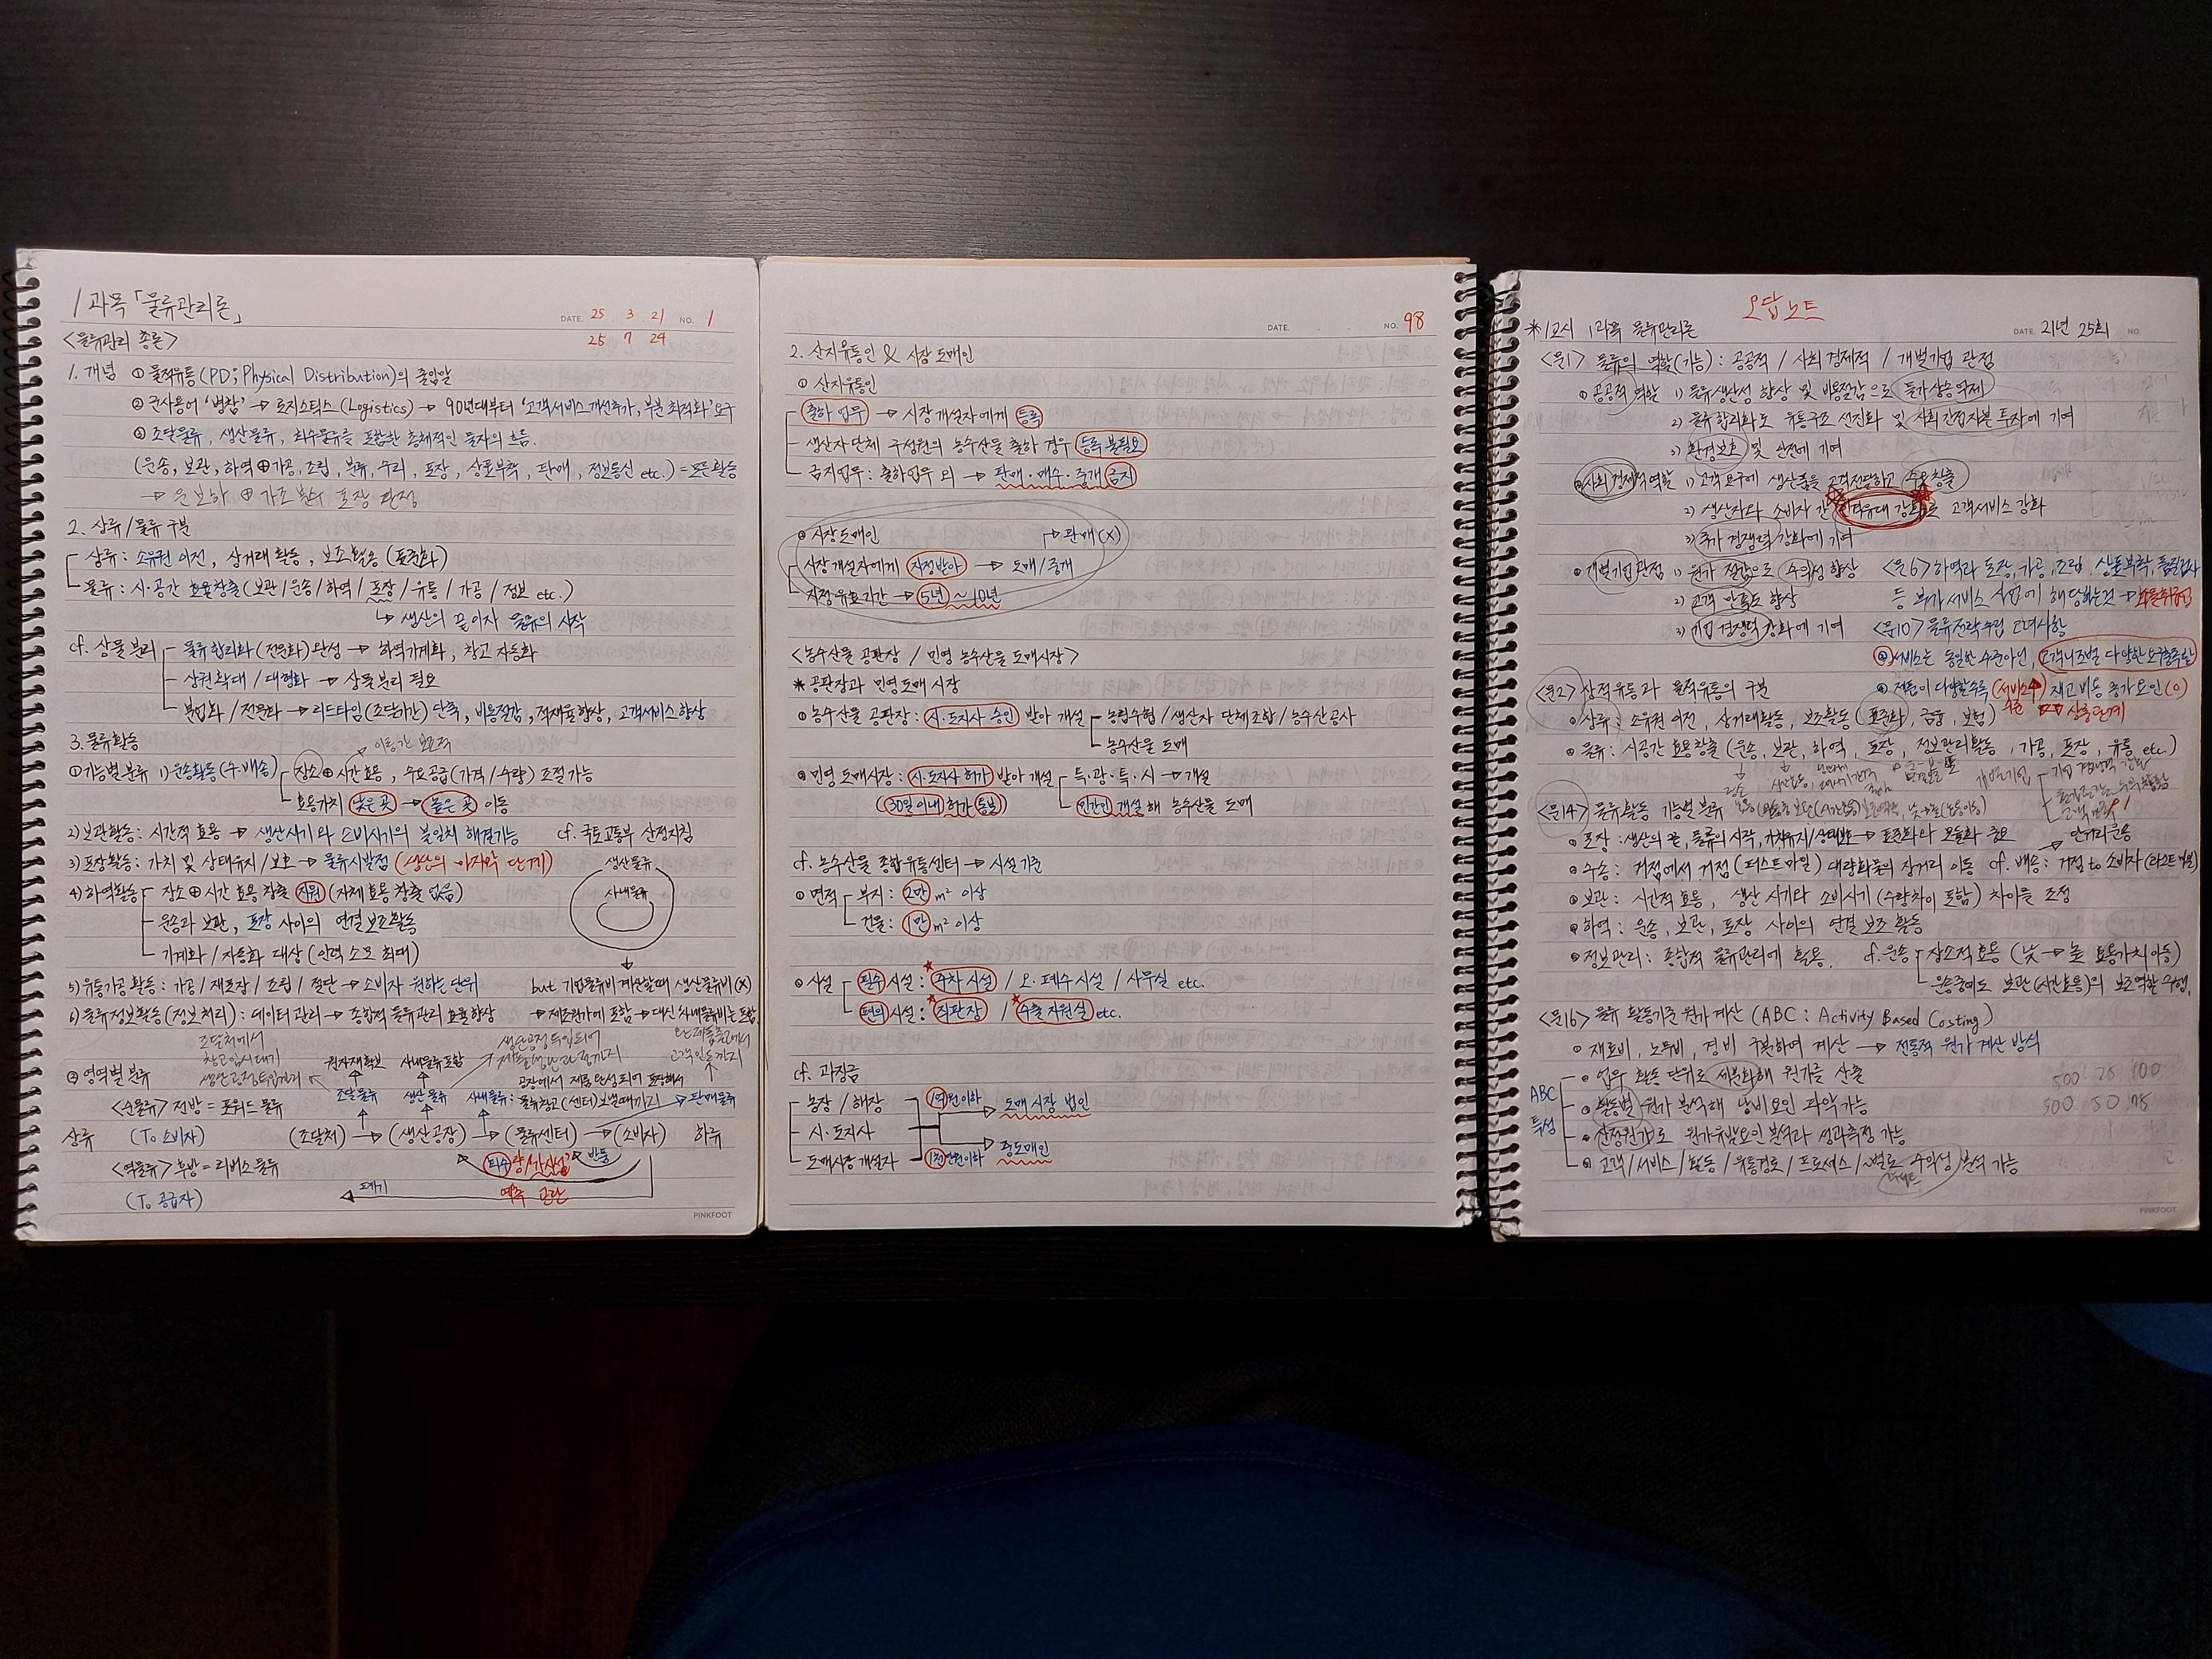 1과목 「물류관리론」
DATE. 25 3 21 NO. 1
25 7 24
<물류관리 총론>
1. 개념 ① 물적유통(PD; Physical Distribution)의 줄임말
② 군사용어 '병참' → 로지스틱스(Logistics) → 90년대부터 '고객서비스 개선추가, 부분 최적화' 요구
③ 조달물류, 생산물류, 회수물류를 포함한 총체적인 물자의 흐름.
(운송, 보관, 하역 ⊕ 가공, 조립, 분류, 수리, 포장, 상표부착, 판매, 정보통신 etc.) = 모든활동
→ 운보하 ⊕ 가조분수 포장 판정
2. 상류/물류 구분
상류 : 소유권 이전, 상거래 활동, 보조활동 (표준화)
물류 : 시·공간 효용창출 (보관/운송/하역/포장/유통/가공/정보 etc.)
↳ 생산의 끝이자 물류의 시작
cf. 상물 분리 물류합리화(전문화) 완성 → 하역기계화, 창고 자동화
상권확대 / 대형화 → 상물분리 필요
분업화/전문화 → 리드타임(조달기간) 단축, 비용절감, 적재율향상, 고객서비스 향상
3. 물류활동
① 기능별 분류 1) 운송활동(수·배송) 장소 ⊕ 시간 효용, 수요공급(가격/수량) 조절 가능
효용가치 낮은 곳 → 높은 곳 이동
2) 보관활동 : 시간적 효용 → 생산시기와 소비시기의 불일치 해결가능 cf. 국토교통부 산정지침
3) 포장활동 : 가치 및 상태유지/보호 → 물류시발점 (생산의 마지막 단계) 생산물류
4) 하역활동 장소 ⊕ 시간 효용 창출 지원 (자체 효용 창출 없음) 사내물류
운송과 보관, 포장 사이의 연결 보조활동
기계화 / 자동화 대상 (인력 소모 최대)
5) 유통가공 활동 : 가공 / 재포장 / 조립 / 절단 → 소비자 원하는 단위 but 기업물류비 계산할때 생산물류비(X)
6) 물류정보활동(정보처리) : 데이터 관리 → 종합적 물류관리 효율향상 → 제조원가에 포함 → 대신 사내물류비는 포함
조달처에서 생산공정 투입되어
② 영역별 분류 원자재확보 사내물류포함
조달물류 생산물류 사내물류 : 물류창고(센터) 보낼때까지 → 판매물류
공장에서 제품 완성되어 포장해서
<순물류> 전방 = 포워드 물류
상류 (To 소비자) (조달처) → (생산공장) → (물류센터) → (소비자) 하류
<역물류> 후방 = 리버스 물류
회수 반품
(To 공급자) 폐기 예측 곤란
PINKFOOT
DATE. NO. 98
2. 산지유통인 & 시장 도매인
① 산지유통인
출하 업무 → 시장 개설자에게 등록
생산자 단체 구성원의 농수산물 출하 경우 등록 불필요
금지업무 : 출하업무 외 → 판매·매수·중개 금지
② 시장도매인 → 판매(X)
시장 개설자에게 지정받아 → 도매/중개
지정유효기간 → 5년 ~ 10년
<농수산물 공판장 / 민영 농수산물 도매시장>
* 공판장과 민영 도매 시장
① 농수산물 공판장 : 시·도지사 승인 받아 개설 농림수협 / 생산자 단체조합 / 농수산공사
농수산물 도매
② 민영 도매시장 : 시·도지사 허가 받아 개설 특·광·특·시 → 개설
(30일 이내 허가 통보) 민간인 개설해 농수산물 도매
cf. 농수산물 종합유통센터 → 시설 기준
① 면적 부지 : 2만 m² 이상
건물 : 1만 m² 이상
② 시설 필수 시설 : 주차 시설 / 오·폐수 시설 / 사무실 etc.
편의 시설 : 직판장 / 수출 지원실 etc.
cf. 과징금
농장 / 해장 1억원이하 → 도매 시장 법인
시·도지사
도매시장 개설자 1천만원이하 → 중도매인
오답노트
* 1교시 1과목 물류관리론 DATE. 21년 25회 NO.
<문1> 물류의 역할(기능) : 공공적 / 사회 경제적 / 개별기업 관점
① 공공적 역할 1) 물류생산성 향상 및 비용절감으로 물가상승 억제
2) 물류합리화로 유통구조 선진화 및 사회간접자본 투자에 기여
3) 환경보호 및 안전에 기여
② 사회경제적 역할 1) 고객 요구에 생산품을 고객전달하고 수요창출
2) 생산자와 소비자 간 고객서비스 강화
3) 경쟁력 강화에 기여
③ 개별기업 관점 1) 원가 절감으로 수익성 향상 <문6> 하역과 포장, 가공, 조립, 상표부착, 품질검사
2) 고객 만족도 향상 등 부가서비스 사업에 해당하는것 →
3) 기업 경쟁력 강화에 기여 <문10> 물류전략수립 고려사항
서비스는 동일한 수준아닌, 고객니즈별 다양한 요구충족한
<문2> 상적유통과 물적유통의 구분 제품이 다양할수록 (서비스↑수준) 재고비용 증가요인(O)
상충관계
① 상류 : 소유권 이전, 상거래활동, 보조활동 (표준화, 금융, 보험)
② 물류 : 시공간 효용창출 (운송, 보관, 하역, 포장, 정보관리활동, 가공, 포장, 유통 etc.)
<문14> 물류활동 기능별 분류
① 포장 : 생산의 끝, 물류의 시작, 가치유지/상태보호 → 표준화와 모듈화 중요 단거리운송
② 수송 : 거점에서 거점 (퍼스트마일) 대량화물의 장거리 이동 cf. 배송 : 거점 to 소비자 (라스트마일)
③ 보관 : 시간적 효용, 생산 시기와 소비시기 (수량차이 포함) 차이를 조정
④ 하역 : 운송, 보관, 포장 사이의 연결 보조 활동
⑤ 정보관리 : 종합적 물류관리에 활용. cf. 운송 장소적 효용 (낮 → 높 효용가치 이동)
운송중에도 보관(시간효용)의 보조역할 수행.
<문16> 물류 활동기준 원가 계산 (ABC : Activity Based Costing)
① 재료비, 노무비, 경비 구분하여 계산 → 전통적 원가 계산 방식
ABC 특성
업무 활동 단위로 세분화해 원가를 산출
활동별 원가 분석해 낭비요인 파악 가능
산정원가로 원가유발요인 분석과 성과측정 가능
고객/서비스/활동/유통경로/프로세스/~별로 수익성 분석 가능
500 25 100
500 50 75
PINKFOOT